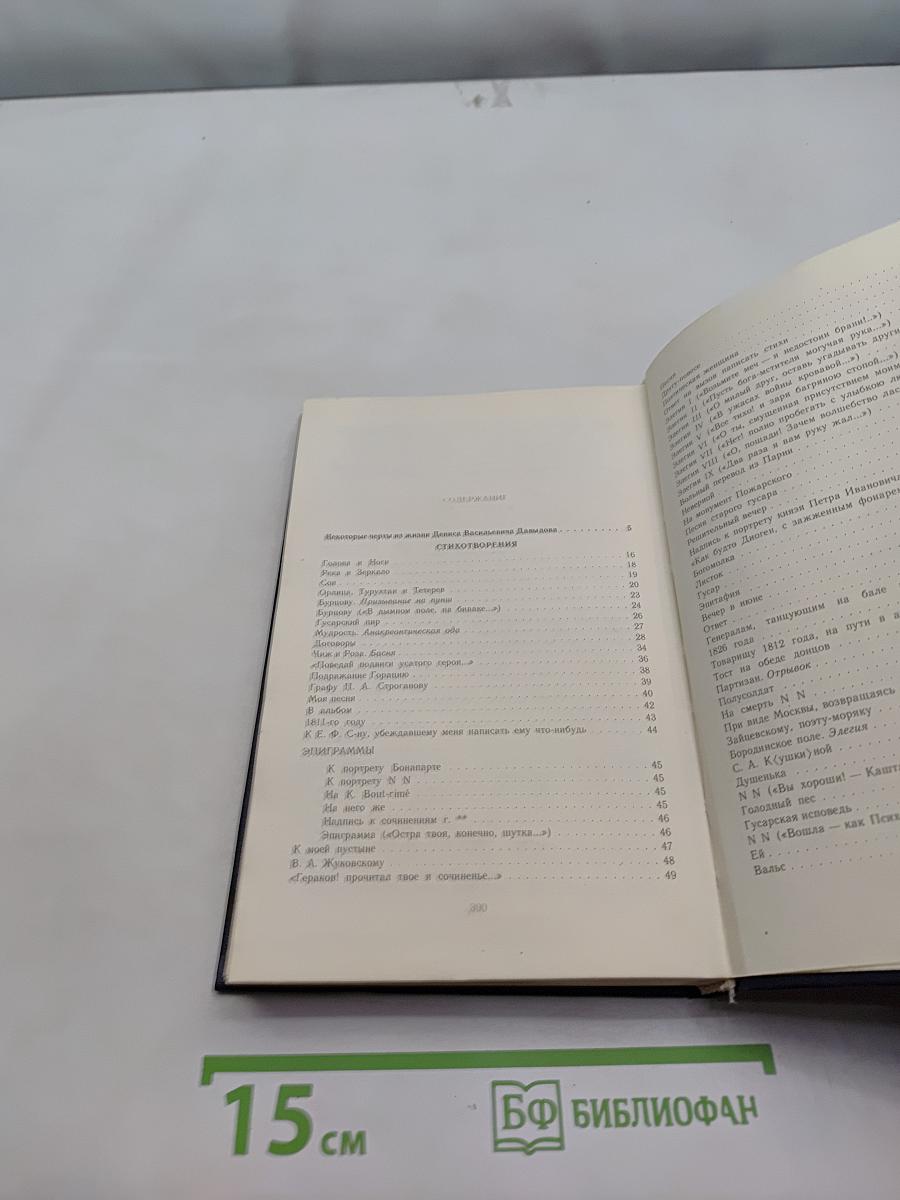 СОДЕРЖАНИЕ
Некоторые черты из жизни Дениса Васильевича Давыдова . . . . . . . . . 5
СТИХОТВОРЕНИЯ
Голова и Ноги 16
Река и Зеркало 18
Сон 19
Орлица, Турухтан и Тетерев 20
Бурцову. Призывание на пунш 23
Бурцову («В дымном поле, на биваке...») 24
Гусарский пир 26
Мудрость. Анакреонтическая ода 27
Договоры 28
Чиж и Роза. Басня 34
«Поведай подвиги усатого героя...» 36
Подражание Горацию 38
Графу П. А. Строганову 39
Моя песня 40
В альбом 42
1811-го году 43
К Е. Ф. С-ну, убеждавшему меня написать ему что-нибудь 44
ЭПИГРАММЫ
К портрету Бонапарте 45
К портрету N N 45
На К. Bout-rimé 45
На него же 45
Надпись к сочинениям г. ** 46
Эпиграмма («Остра твоя, конечно, шутка...») 46
К моей пустыне 47
В. А. Жуковскому 48
«Гераков! прочитал твое я сочиненье...» 49
390
Песня
Другу-повесе
Поэтическая женщина
Ответ на вызов написать стихи
Элегия I («Возьмите меч — я недостоин брани!..»)
Элегия II («Пусть бога-мстителя могучая рука...»)
Элегия III («О милый друг, оставь угадывать други
Элегия IV («В ужасах войны кровавой...»)
Элегия V («Все тихо! и заря багряною стопой...»)
Элегия VI («О ты, смущенная присутствием моим
Элегия VII («Нет! полно пробегать с улыбкою лю
Элегия VIII («О, пощади! Зачем волшебство лас
Элегия IX («Два раза я вам руку жал...»)
Вольный перевод из Парни
Неверной
На монумент Пожарского
Песня старого гусара
Решительный вечер
Надпись к портрету князя Петра Ивановича
«Как будто Диоген, с зажженным фонарем
Богомолка
Листок
Гусар
Эпитафия
Вечер в июне
Ответ
Генералам, танцующим на бале
1826 года
Товарищу 1812 года, на пути в а
Тост на обеде донцов
Партизан. Отрывок
Полусолдат
На смерть N N
При виде Москвы, возвращаясь
Зайцевскому, поэту-моряку
Бородинское поле. Элегия
С. А. К⟨ушки⟩ной
Душенька
N N («Вы хороши! — Кашта
Голодный пес
Гусарская исповедь
N N («Вошла — как Психе
Ей
Вальс
15 см
БФ БИБЛИОФАН